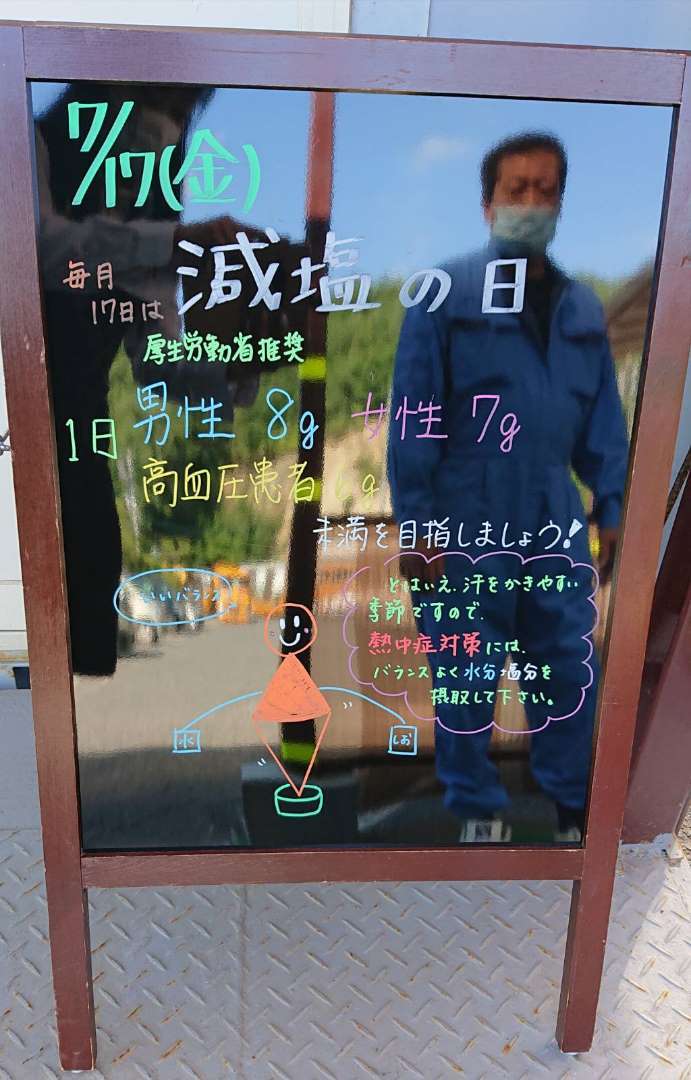 7/17(金)
毎月
17日は
減塩の日
厚生労働省推奨
1日 男性 8g 女性 7g
高血圧患者 6g
未満を目指しましょう!
とはいえ、汗をかきやすい
季節ですので、
熱中症対策には、
バランスよく水分・塩分を
摂取して下さい。
いいバランス
水
しお